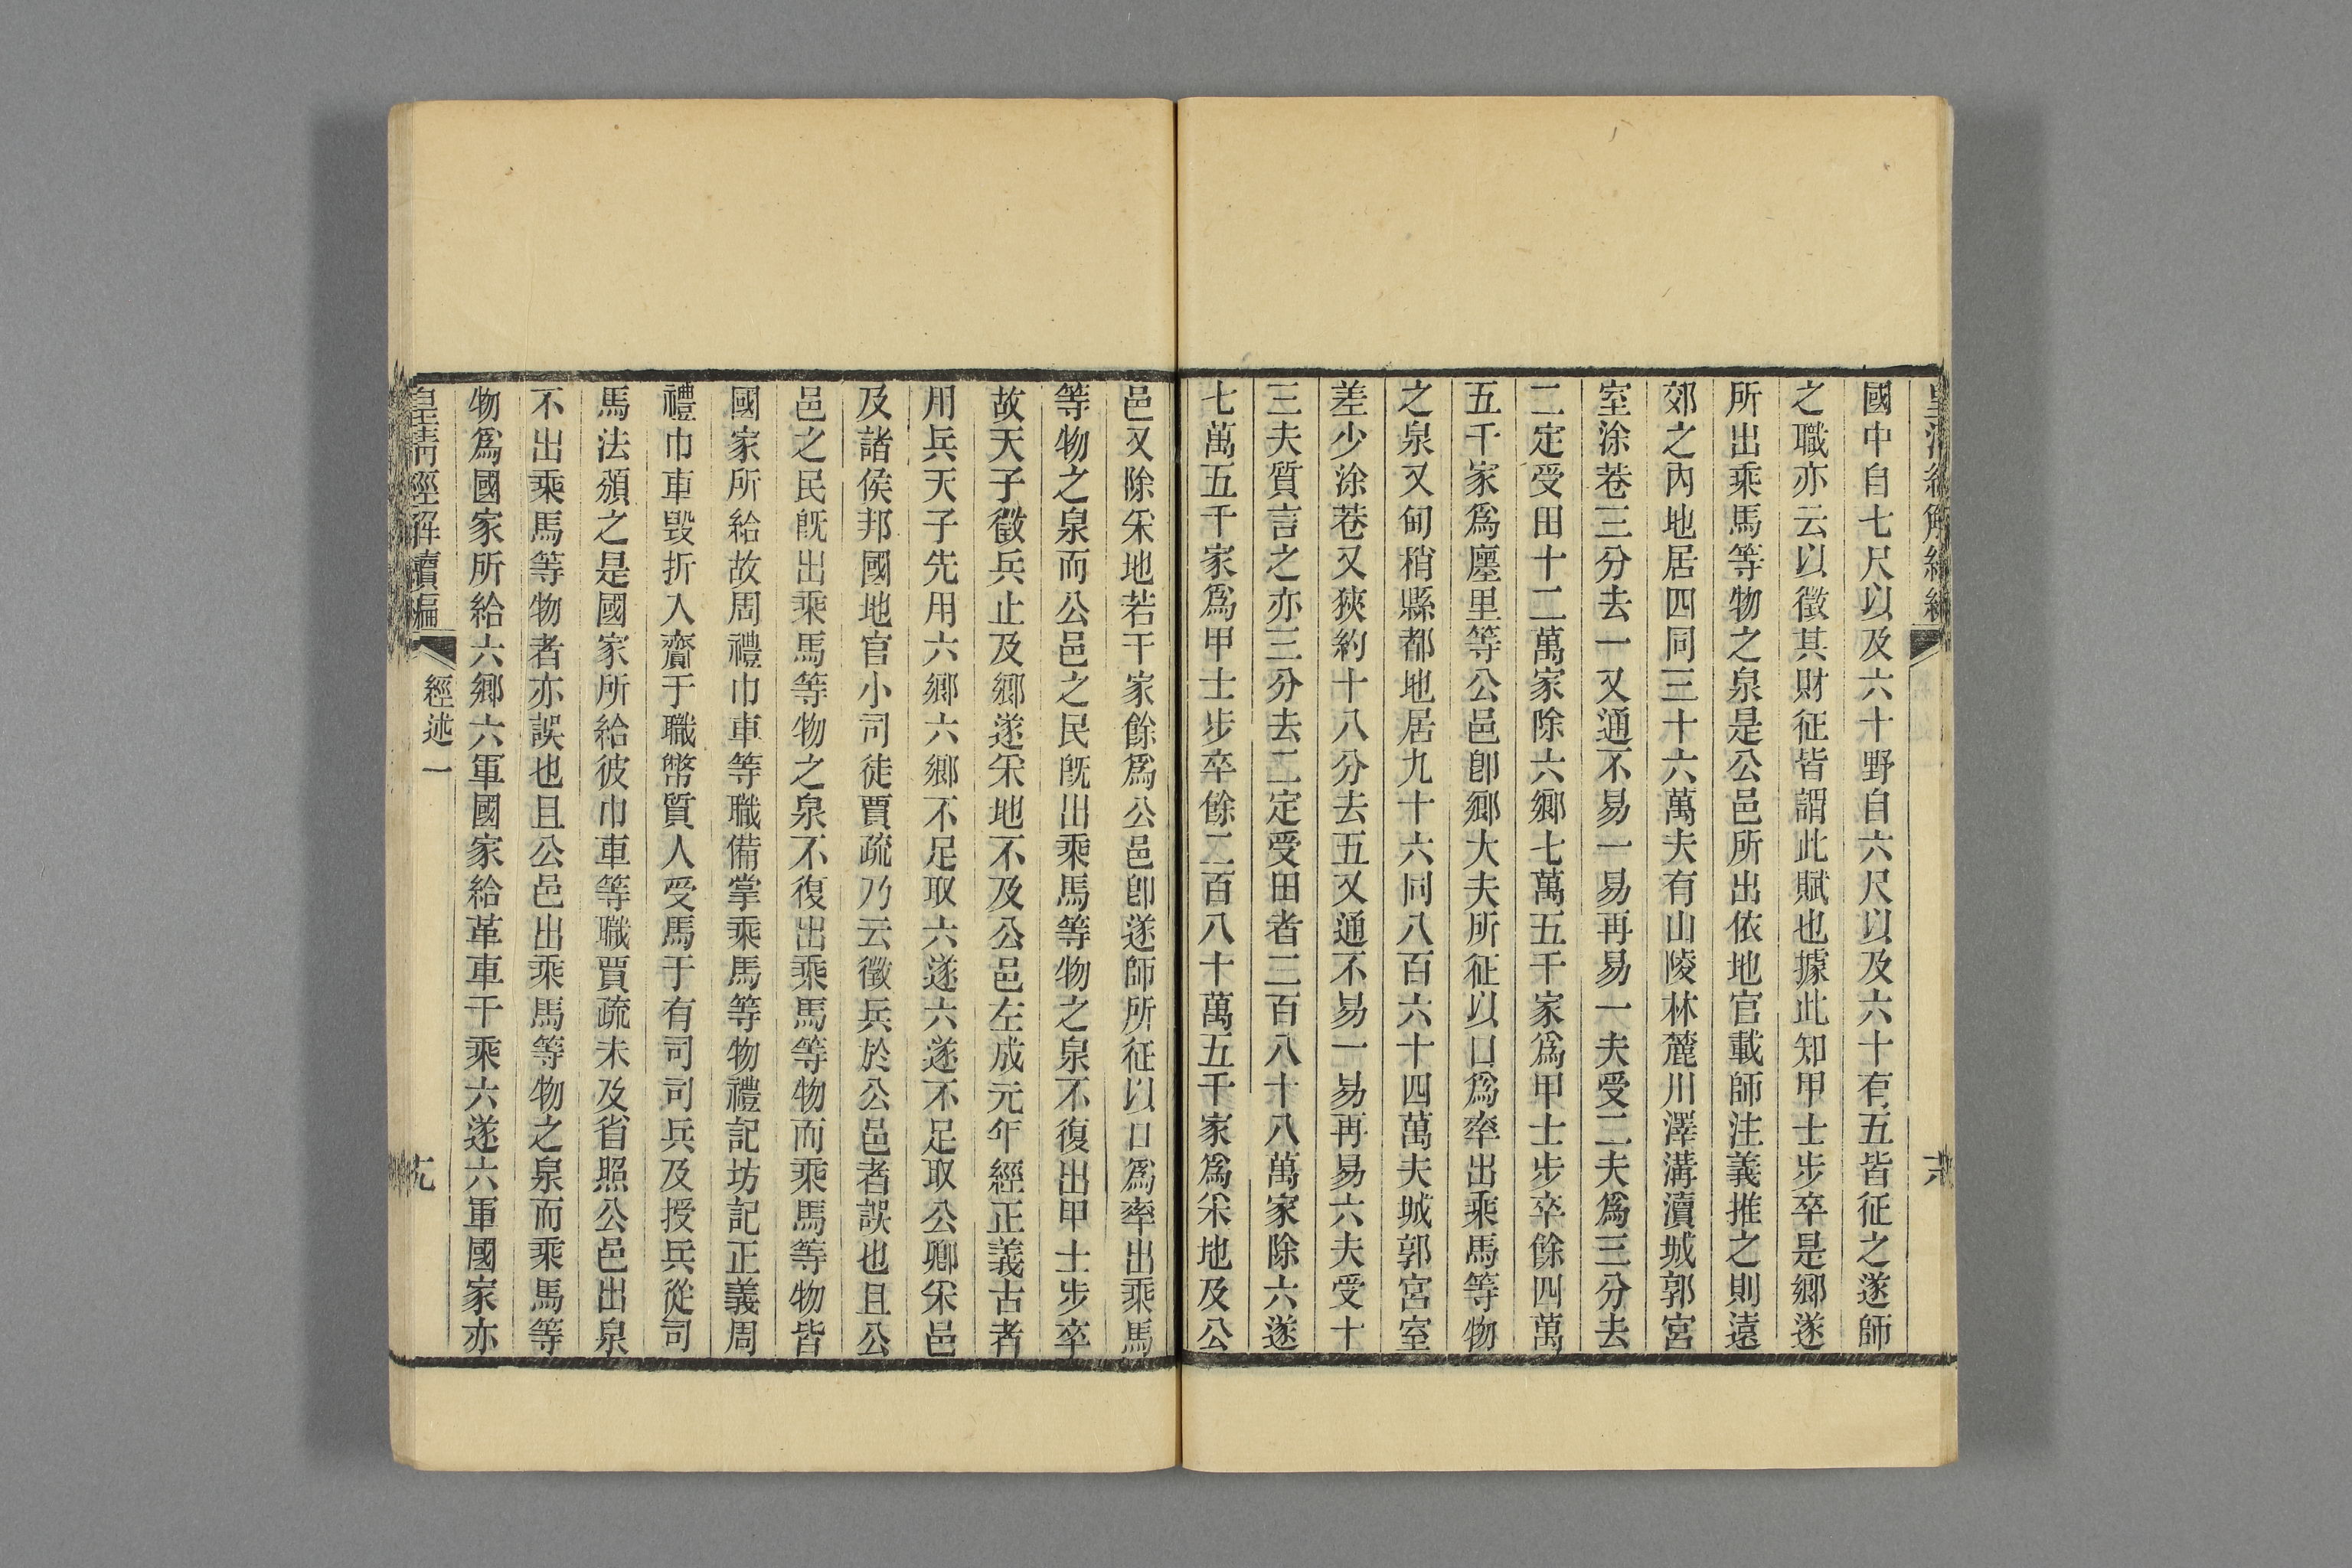 國中自七尺以及六十野自六尺以及六十有五皆征之遂師
之職亦云以徵其財征皆謂此賦也據此知甲士步卒是鄉遂
所出乘馬等物之泉是公邑所出依地官載師注義推之則遠
郊之內地居四同三十六萬夫有山陵林麓川澤溝瀆城郭宮
室涂巷三分去一又通不易一易再易一夫受二夫爲三分去
二定受田十二萬家除六鄉七萬五千家爲甲士步卒餘四萬
五千家爲廛里等公邑卽鄉大夫所征以口爲率出乘馬等物
之泉又甸稍縣都地居九十六同八百六十四萬夫城郭宮室
差少涂巷又狹約十八分去五又通不易一易再易六夫受十
三夫質言之亦三分去二定受田者二百八十八萬家除六遂
七萬五千家爲甲士步卒餘二百八十萬五千家爲采地及公
邑又除采地若干家餘爲公邑卽遂師所征以口爲率出乘馬
等物之泉而公邑之民旣出乘馬等物之泉不復出甲士步卒
故天子徵兵止及鄉遂采地不及公邑左成元年經正義古者
用兵天子先用六鄉六鄉不足取六遂六遂不足取公卿采邑
及諸侯邦國地官小司徒賈疏乃云徵兵於公邑者誤也且公
邑之民旣出乘馬等物之泉不復出乘馬等物而乘馬等物皆
國家所給故周禮巾車等職備掌乘馬等物禮記坊記正義周
禮巾車毀折入齎于職幣質人受馬于有司司兵及授兵從司
馬法頒之是國家所給彼巾車等職賈疏未及省照公邑出泉
不出乘馬等物者亦誤也且公邑出乘馬等物之泉而乘馬等
物爲國家所給六鄉六軍國家給革車千乘六遂六軍國家亦
皇淸經解續編
經述一